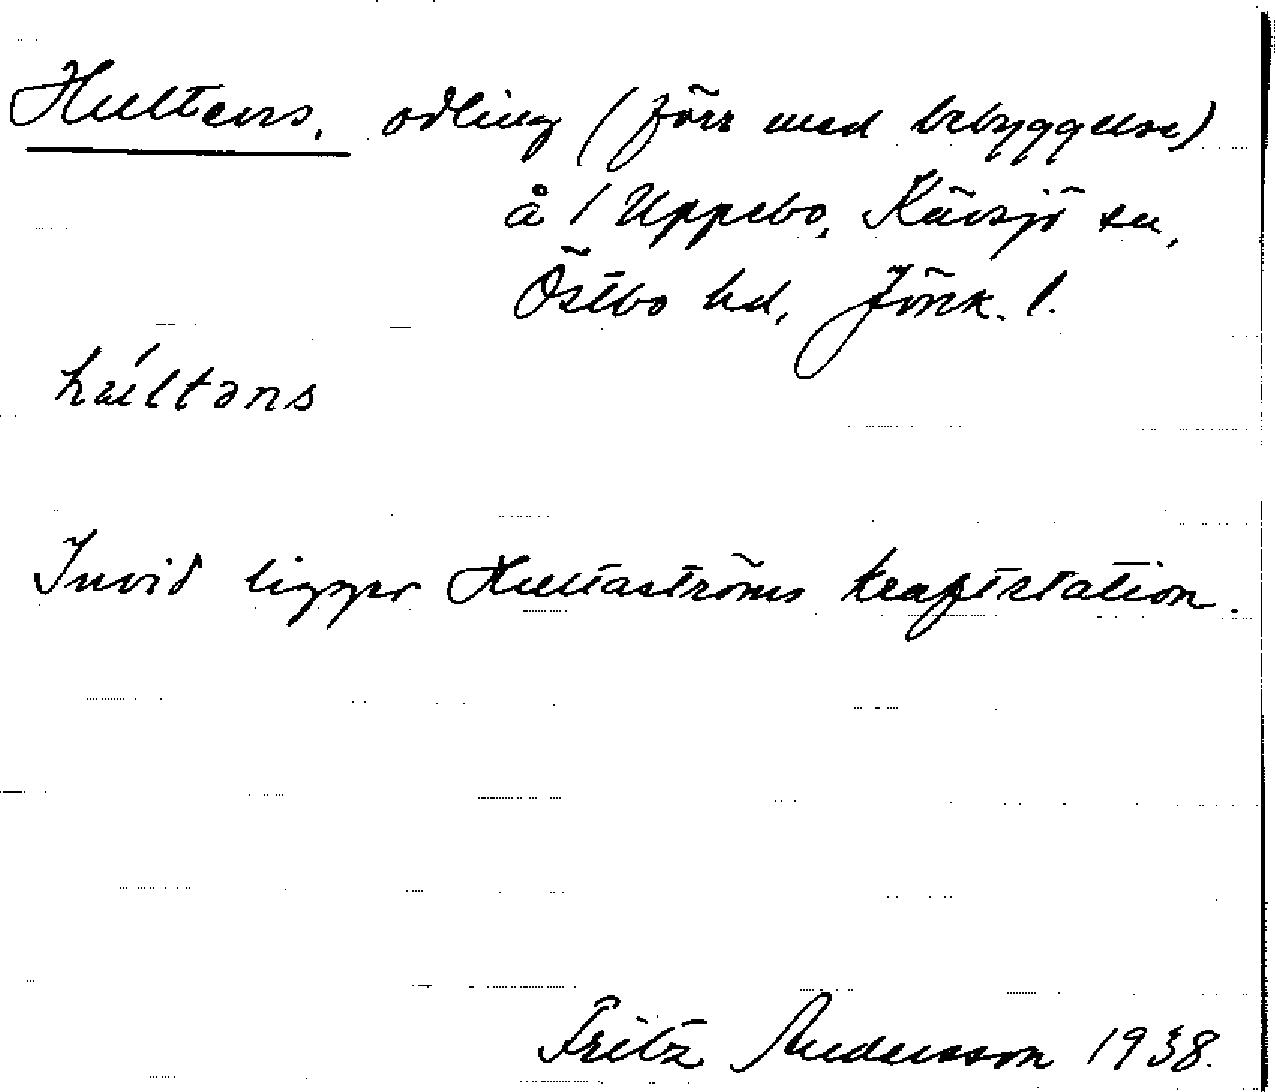 Hultens, odling (förr med bebyggelse)
å 1 Uppebo, Kävsjö sn,
Östbo hd, Jönk. l.
húltəns
Invid ligger Hultaströms kraftstation.
Fritz Andersson 1938.